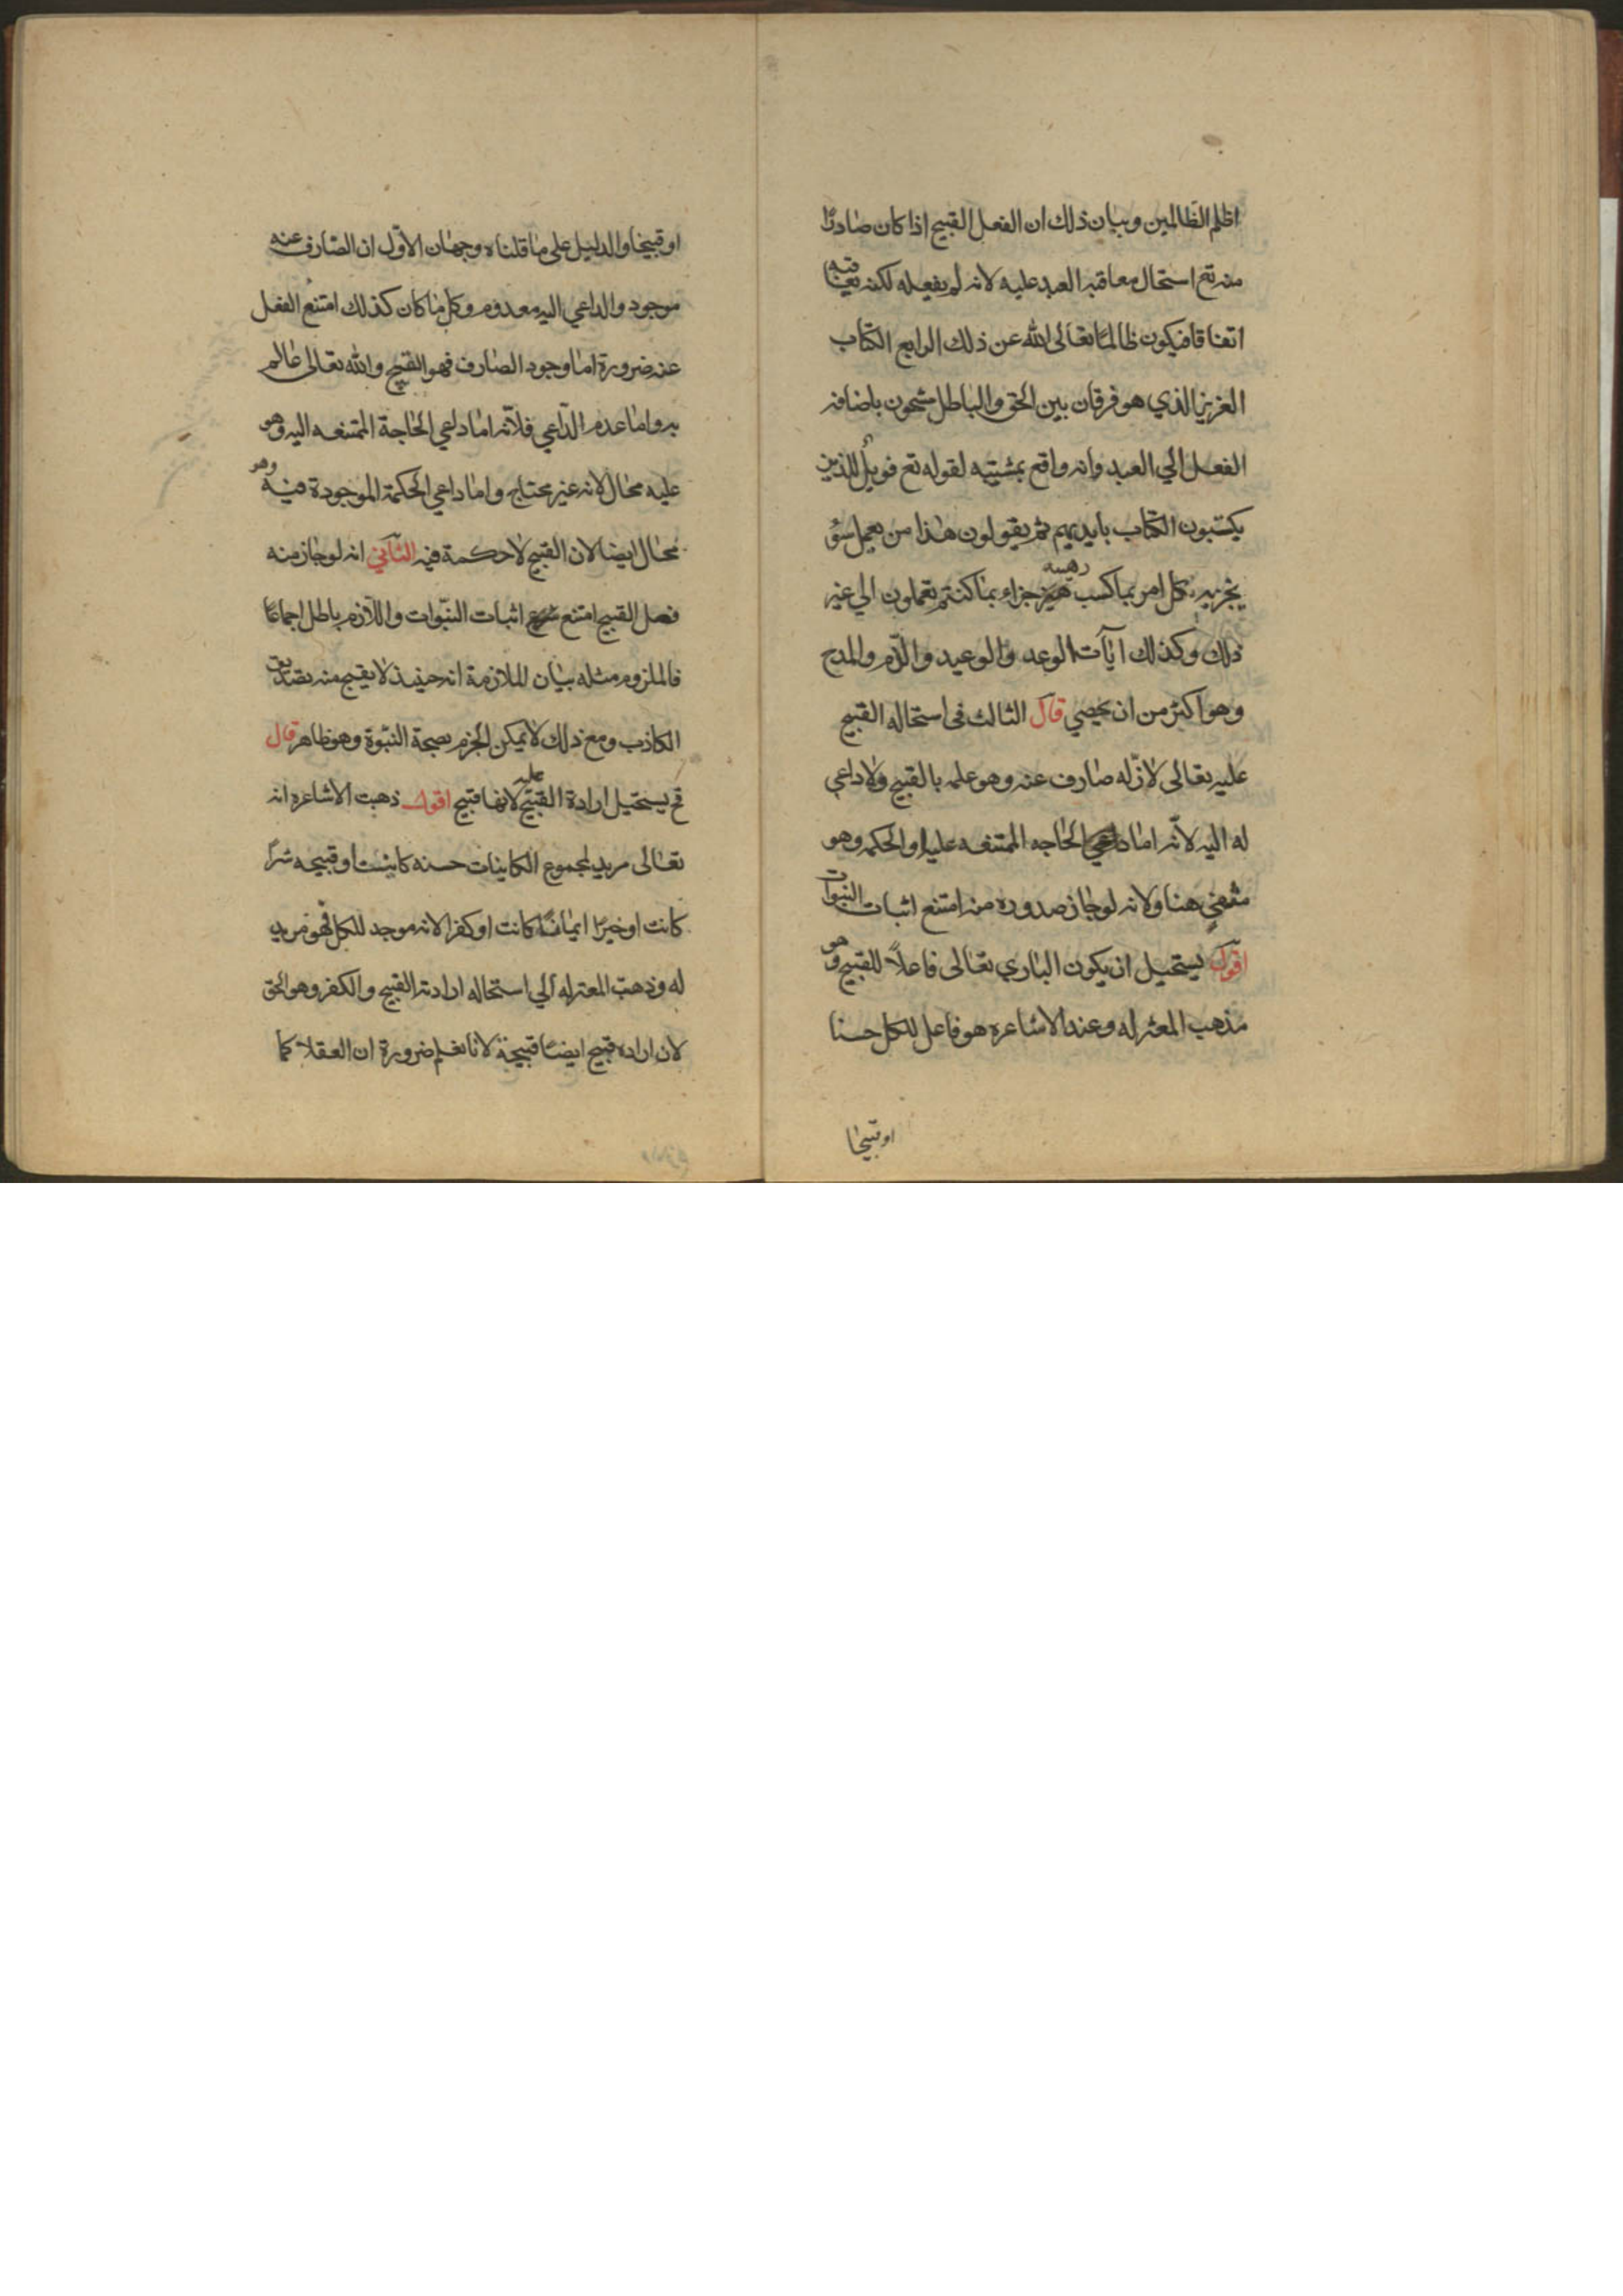 اظلم الظالمين وبيان ذلك ان الفعل القبيح اذا كان صادرًا
منه تع استحال معاقبه العبد عليه لانه لم يفعله لكنه يعاقبه
اتفاقا فيكون ظالمًا تعالى الله عن ذلك الرابع الكتاب
العزيز الذي هو فرقان بين الحق والباطل مشحون باضافه
الفعل الي العبد وانه واقع بمشيته لقوله تع فويل للذين
يكتبون الكتاب بايديهم ثم يقولون هذا من يعمل سؤ
يجز به كل امر بما كسب رهينه جزاء بما كنتم تعملون الي غير
ذلك وكذلك ايآت الوعد والوعيد والذم والمدح
وهو اكثر من ان يحصي قال الثالث فى استحاله القبيح
عليه تعالى لان له صارف عنه وهو علمه بالقبيح ولا داعي
له اليه لانه اما داعي الحاجه الممتنعه عليه او الحكمه وهو
منفي هنا ولانه لو جاز صدوره منه امتنع اثبات النبوات
اقول يستحيل ان يكون الباري تعالى فاعلاً للقبيح وهو
مذهب المعتزله وعند الاشاعره هو فاعل للكل حسنا
اوقبيحا
اوقبيحا والدليل على ما قلناه وجهان الاوّل ان الصّارف عنه
موجود والداعي اليه معدوم وكل ما كان كذلك امتنع الفعل
عنه ضرورة اما وجود الصارف فهو القبح والله تعالى عالم
به واما عدم الدّاعي فلانّه اما داعي الحاجة الممتنعه اليه وهو
عليه محال لانه غير محتاج واما داعي الحكمة الموجودة فيه وهو
محال ايضا لان القبيح لا حكمة فيه الثاني انه لو جاز منه
فعل القبيح امتنع اثبات النبّوات واللّازم باطل اجماعًا
فالملزوم مثله بيان الملازمة انه حينيذ لا يقبح منه تصديق
الكاذب ومع ذلك لا يمكن الجزم بصحة النبّوة وهو ظاهر قال
فح يستحيل ارادة القبيح عليه لانها قبيح اقول ذهبت الاشاعره انه
تعالى مريد لمجموع الكاينات حسنه كانت او قبيحه شرًا
كانت او خيرًا ايمانًا كانت او كفرا لانه موجد للكل فهو مريد
له وذهبت المعتزله الي استحاله ارادته القبيح والكفر وهو الحق
لان اراده قبيح ايضًا قبيحة لانا نعلم ضرورة ان العقلاء كما